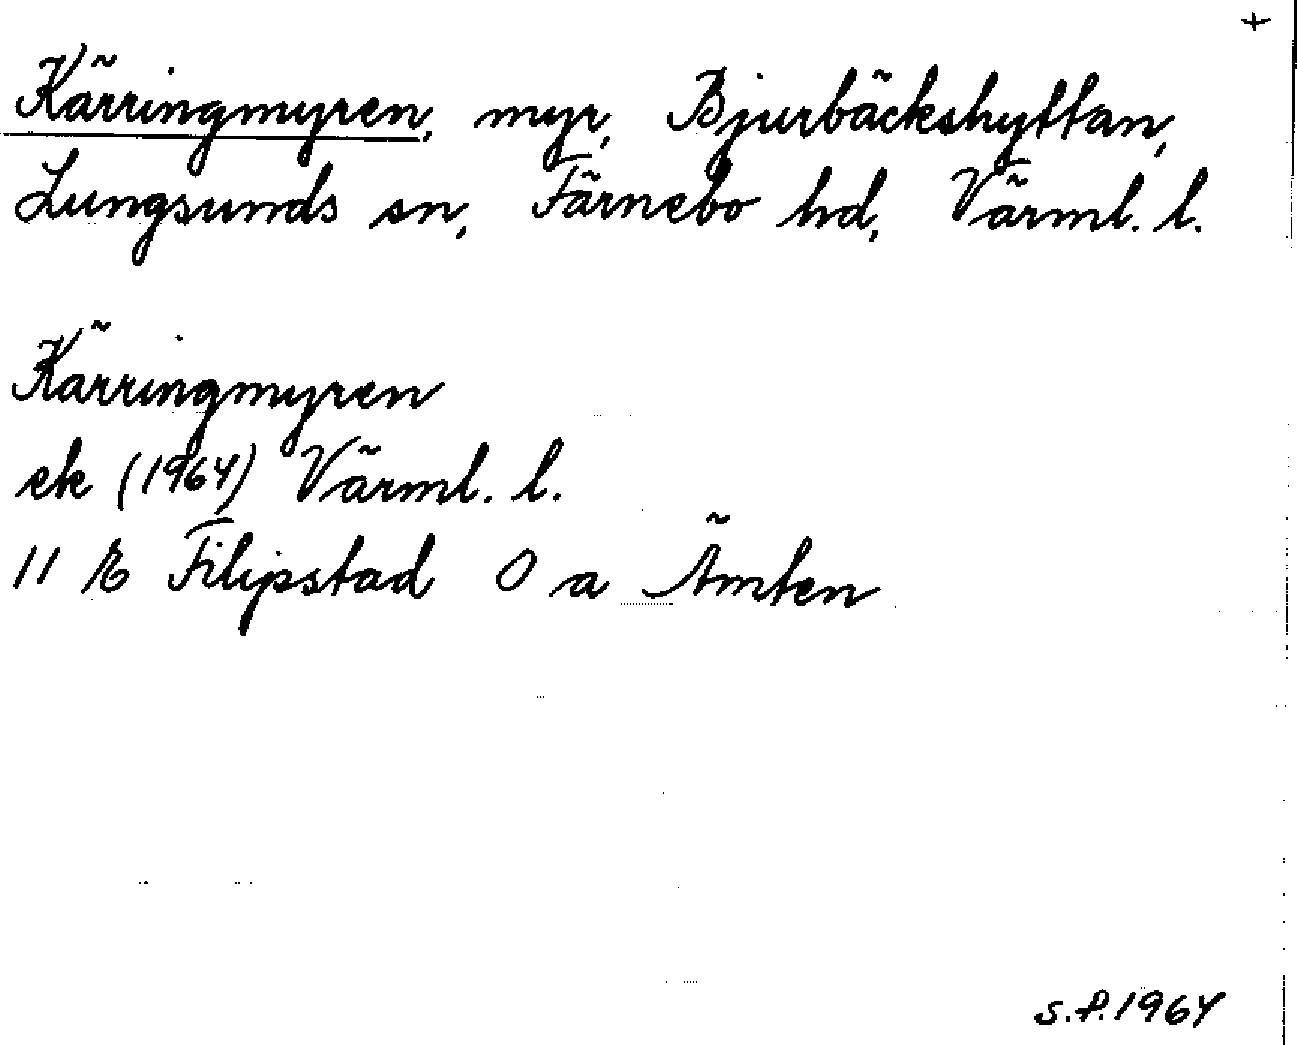 +
Kärringmyren, myr, Bjurbäckshyttan,
Lungsunds sn, Färnebo hd, Värml. l.
Kärringmyren
ek (1964) Värml. l.
11 E Filipstad 0 a Ämten
S.P. 1964